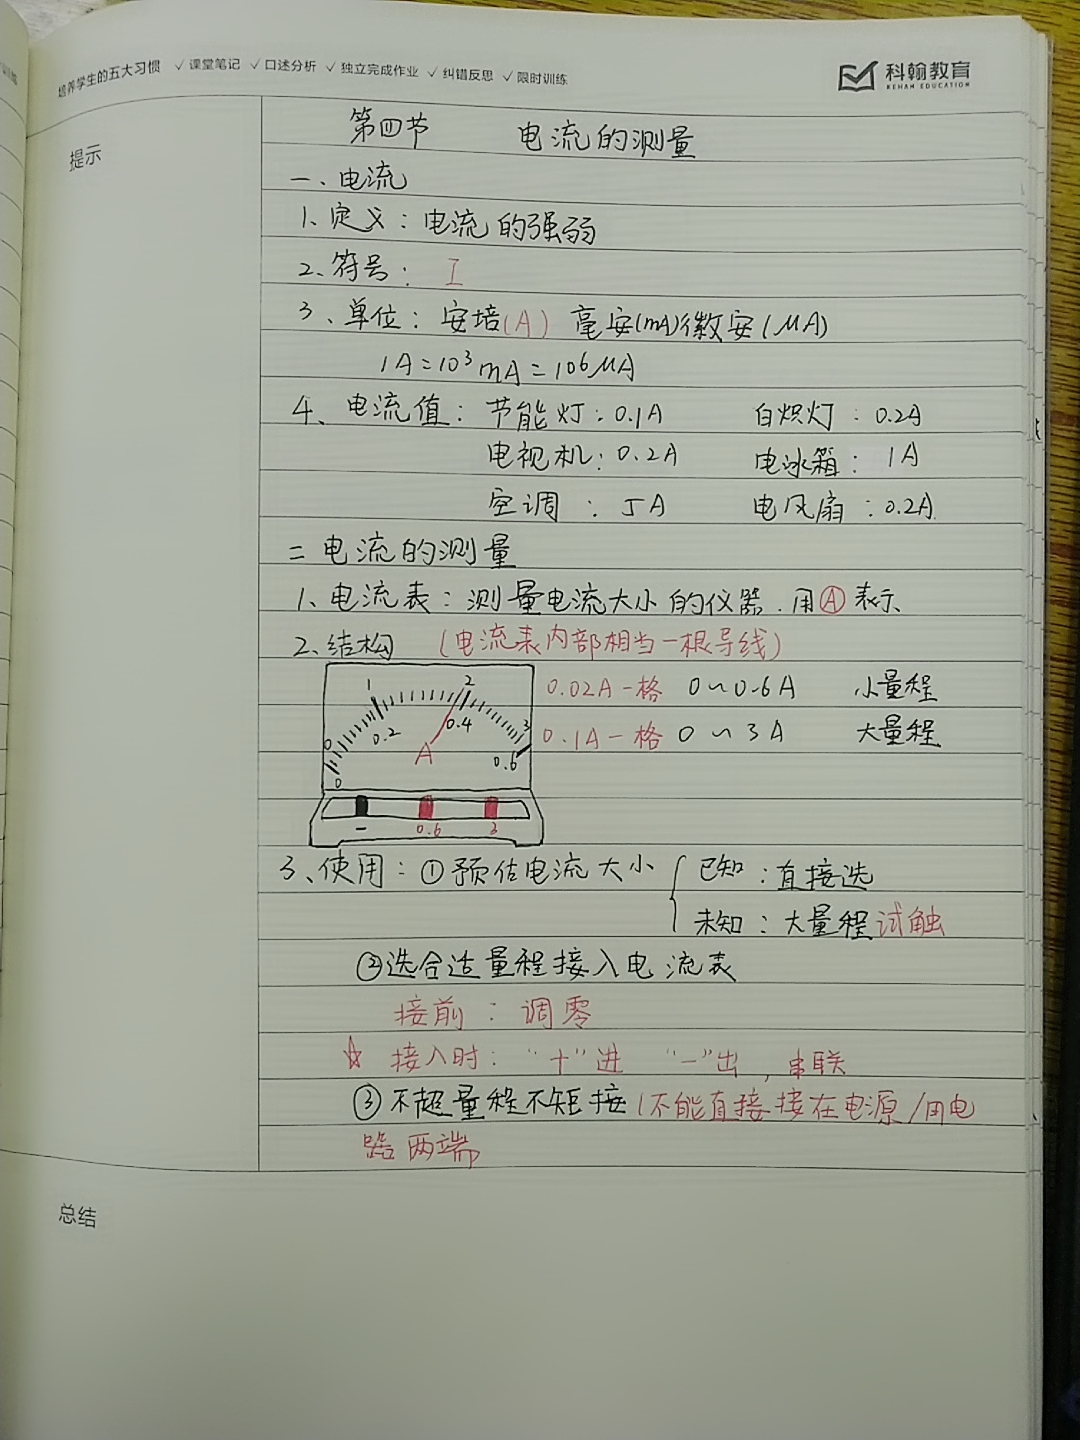 培养学生的五大习惯 ✓课堂笔记 ✓口述分析 ✓独立完成作业 ✓纠错反思 ✓限时训练
科翰教育
KEHAN EDUCATION
提示
第四节 电流的测量
一、电流
1、定义：电流的强弱
2、符号：I
3、单位：安培(A) 毫安(mA)微安(μA)
1A=10³mA=10⁶μA
4、电流值：节能灯：0.1A 白炽灯：0.2A
电视机：0.2A 电冰箱：1A
空调：5A 电风扇：0.2A
二电流的测量
1、电流表：测量电流大小的仪器.用Ⓐ表示
2、结构 (电流表内部相当一根导线)
0.02A一格 0~0.6A 小量程
0.1A一格 0~3A 大量程
0 1 2 3
0 0.2 0.4 0.6
A
- 0.6 3
3、使用：①预估电流大小 { 已知：直接选
未知：大量程试触
②选合适量程接入电流表
接前：调零
☆ 接入时："十"进 "一"出，串联
③不超量程不矩接(不能直接接在电源/用电
路两端
总结